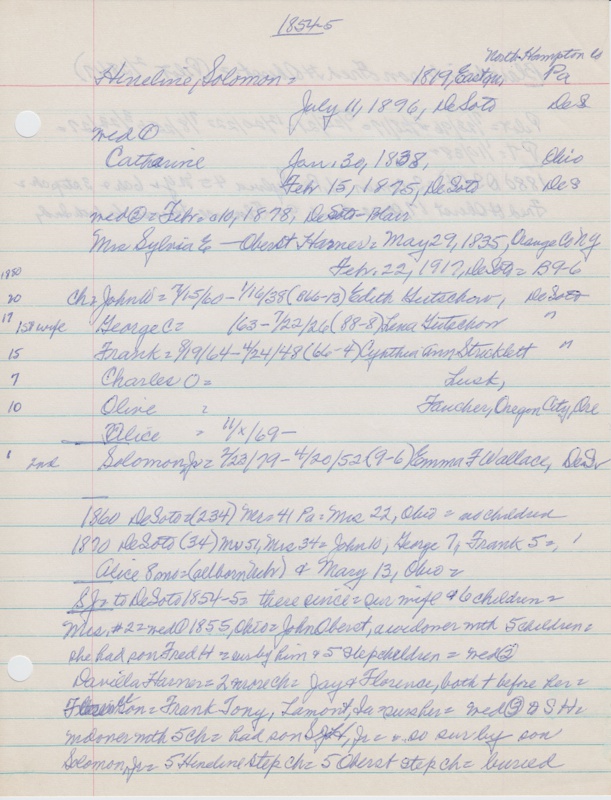 1854-5
North Hampton Co
Hineline, Solomon = 1819, Easton, Pa
July 11, 1896, DeSoto DeS
med ①
Catharine Jan. 30, 1838, Ohio
Feb 15, 1875, DeSoto DeS
med ② = Febr. 10, 1878, DeSoto - Blair
Mrs Sylvia E - Oberst Harner = May 29, 1835, Orange Co NY
Febr. 22, 1917, DeSoto = B9-6
1880
20 Ch = John W = 7/15/60 - 1/16/38 (866-13) Edith Gutschow, DeSoto
17 1st wife George C = /63 - 7/22/26 (88-8) Lena Gutschow "
15 Frank = 8/19/64 - 4/24/48 (66-4) Cynthia Ann Stricklett "
7 Charles O = Lusk,
10 Olive = Faucher, Oregon City, Ore
Alice = 11/x/69 -
1 2nd Solomon, Jr = 2/23/79 - 4/20/52 (9-6) Emma F Wallace, DeS
1860 DeSoto = (234) Mr = 41 Pa = Mrs 22, Ohio = no children
1870 DeSoto (34) Mr 51, Mrs 34 = John 10, George 7, Frank 5 =,
Alice 8 mo = (all born Nebr) & Mary 13, Ohio =
S J = to DeSoto 1854-5 = there since = sur wife & 6 children =
Mrs. #2 = med ① 1855, Ohio = John Oberst, a widower with 5 children =
she had son Fred H = sur by him & 5 stepchildren = med ②
Davilla Harner = 2 more ch = Jay & Florence, both + before her =
son = Frank Tony, Lamont, Ia sur her = med ③ S H =
widower with 5 ch = had son Jr = so sur by son
Solomon, Jr = 5 Hineline step ch = 5 Oberst step ch = buried